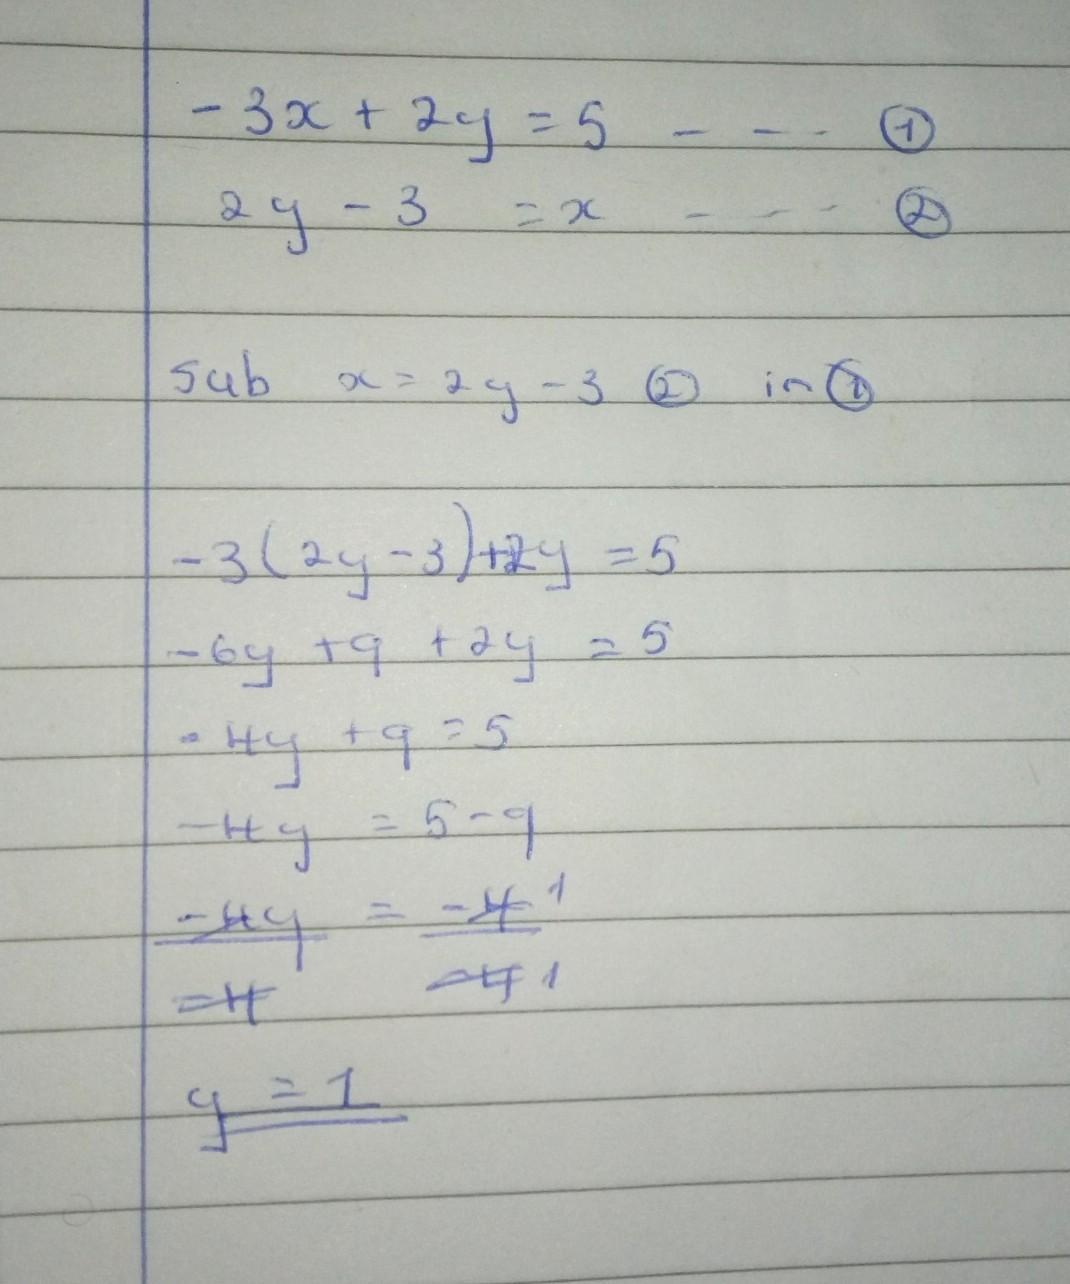 -3x + 2y = 5 - - - - ①
2y - 3 = x - - - - ②
Sub x = 2y - 3 ② in ①
-3(2y - 3) + 2y = 5
-6y + 9 + 2y = 5
-4y + 9 = 5
-4y = 5 - 9
-4y = -4 1
-4 -4 1
y = 1